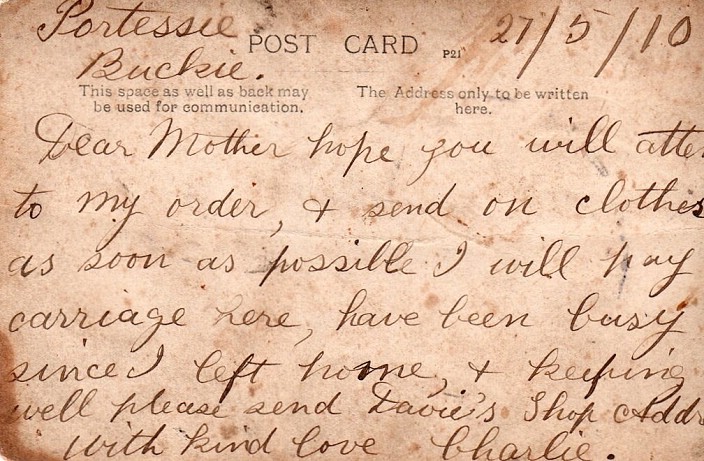 Portessie
POST CARD P21 27/5/10
Buckie.
This space as well as back may
be used for communication.
The Address only to be written
here.
Dear Mother hope you will atte
to my order, & send on clothes
as soon as possible I will pay
carriage here, have been busy
since I left home, & keeping
well please send Davie's Shop Addr
with kind love Charlie.